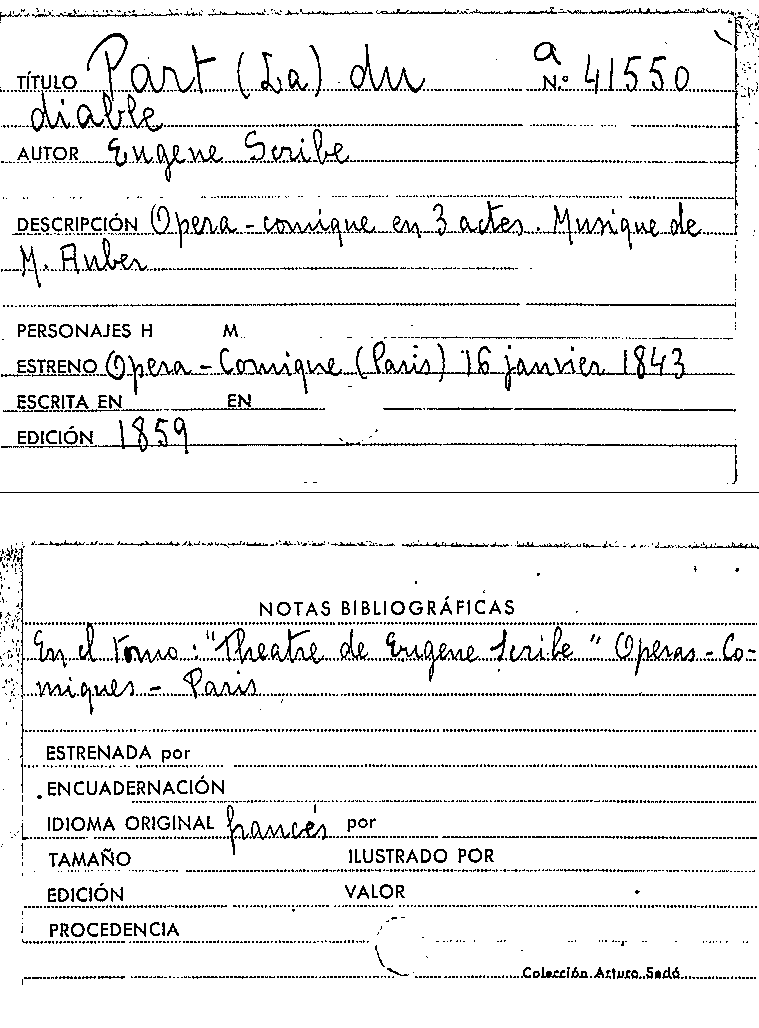 TÍTULO Part (La) du a N.º 41550
diable
AUTOR Eugene Scribe
DESCRIPCIÓN Opera-comique en 3 actes. Musique de
M. Auber
PERSONAJES H M
ESTRENO Opera-Comique (Paris) 16 janvier 1843
ESCRITA EN EN
EDICIÓN 1859
NOTAS BIBLIOGRÁFICAS
En el tomo: "Theatre de Eugene Scribe" Operas-Co-
miques - Paris
ESTRENADA por
ENCUADERNACIÓN
IDIOMA ORIGINAL francés por
TAMAÑO ILUSTRADO POR
EDICIÓN VALOR
PROCEDENCIA
Colección Arturo Sedó